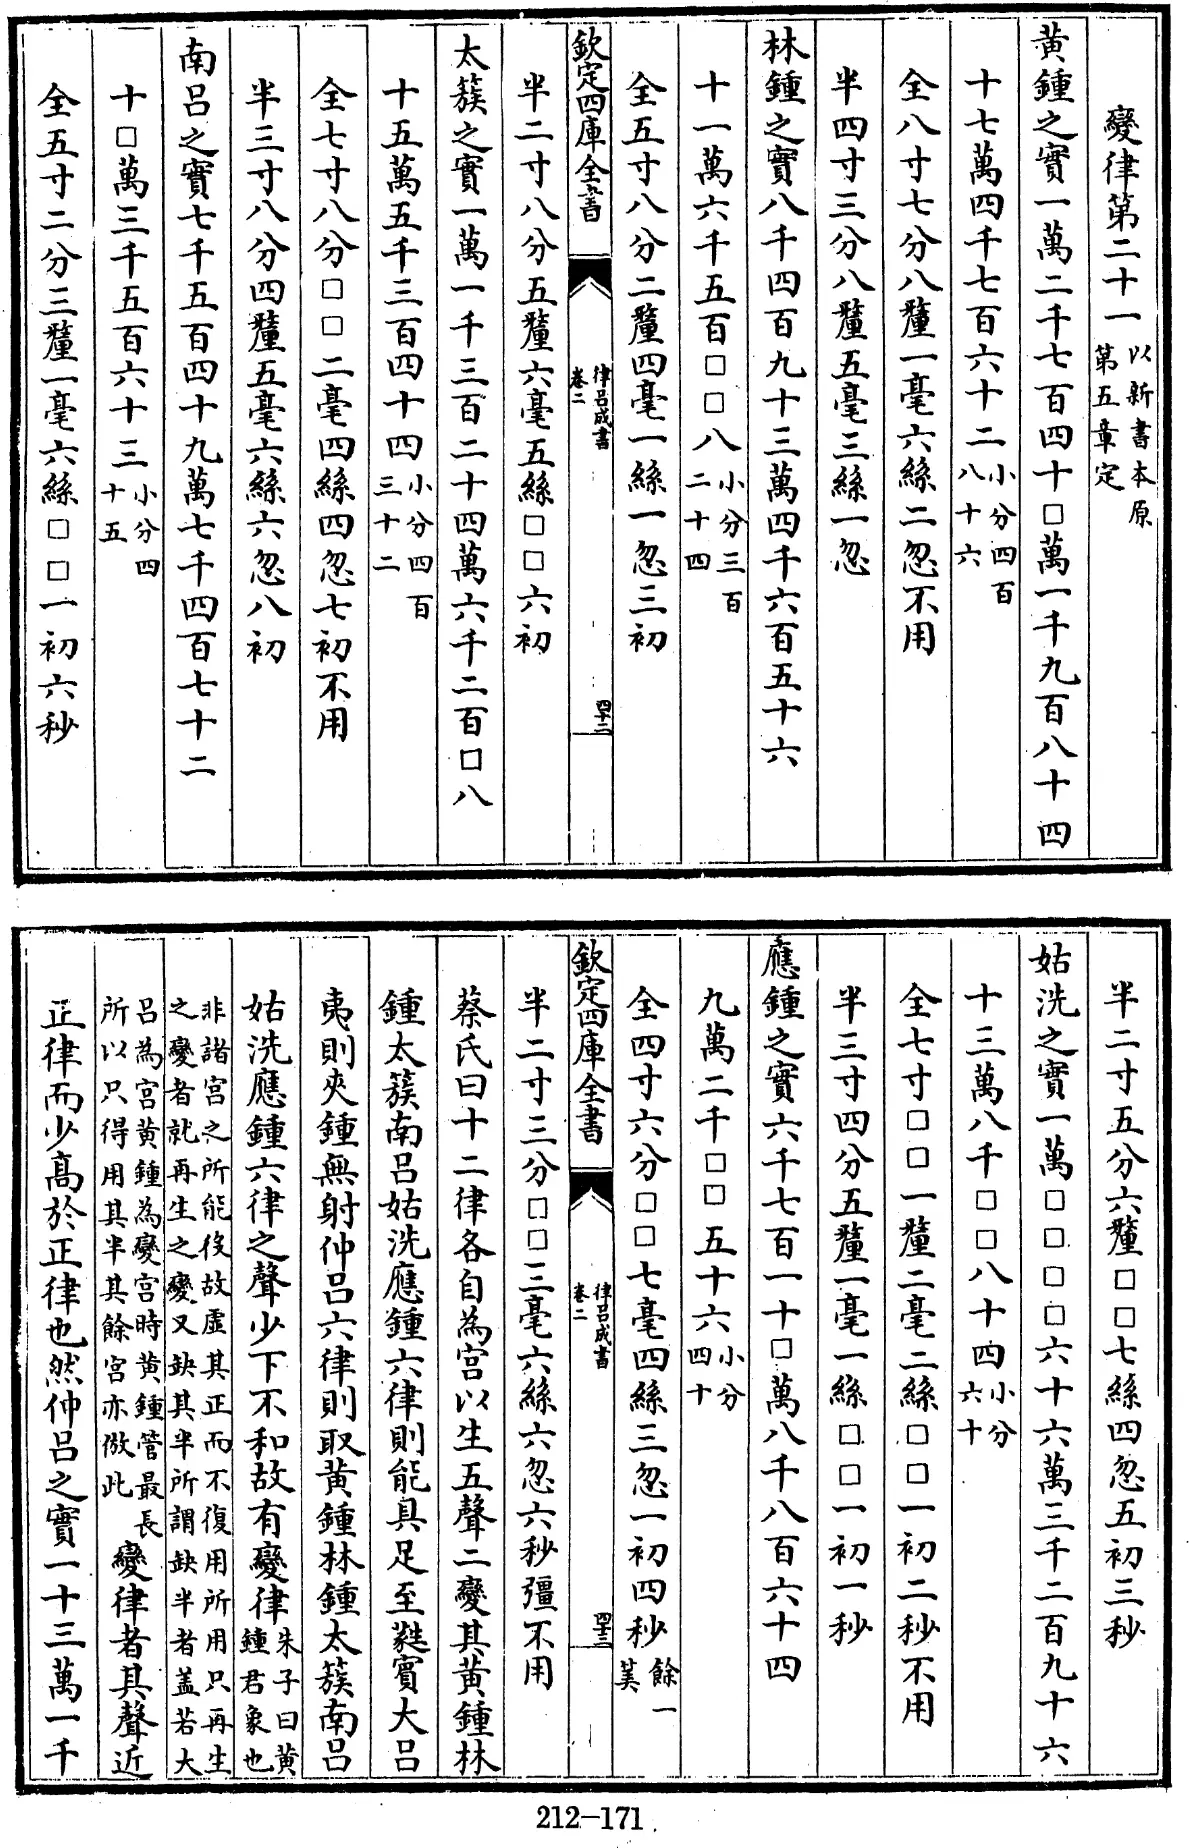 變律第二十一以新書本原第五章定
黃鍾之實一萬二千七百四十□萬一千九百八十四
十七萬四千七百六十二小分四百八十六
全八寸七分八釐一毫六絲二忽不用
半四寸三分八釐五毫三絲一忽
林鍾之實八千四百九十三萬四千六百五十六
十一萬六千五百□□八小分三百二十四
全五寸八分二釐四毫一絲一忽三初
欽定四庫全書
律呂成書
卷二
四十二
半二寸八分五釐六毫五絲□□六初
太簇之實一萬一千三百二十四萬六千二百□八
十五萬五千三百四十四小分四百三十二
全七寸八分□□二毫四絲四忽七初不用
半三寸八分四釐五毫六絲六忽八初
南呂之實七千五百四十九萬七千四百七十二
十□萬三千五百六十三小分四十五
全五寸二分三釐一毫六絲□□一初六秒
半二寸五分六釐□□七絲四忽五初三秒
姑洗之實一萬□□□□六十六萬三千二百九十六
十三萬八千□□八十四小分六十
全七寸□□一釐二毫二絲□□一初二秒不用
半三寸四分五釐一毫一絲□□一初一秒
應鍾之實六千七百一十□萬八千八百六十四
九萬二千□□五十六小分四十
全四寸六分□□七毫四絲三忽一初四秒餘一筭
欽定四庫全書
律呂成書
卷二
四十三
半二寸三分□□三毫六絲六忽六秒彊不用
蔡氏曰十二律各自為宮以生五聲二變其黃鍾林
鍾太簇南呂姑洗應鍾六律則能具足至蕤賓大呂
夷則夾鍾無射仲呂六律則取黃鍾林鍾太簇南呂
姑洗應鍾六律之聲少下不和故有變律朱子曰黃鍾君象也
非諸宮之所能役故虛其正而不復用所用只再生
之變者就再生之變又缺其半所謂缺半者蓋若大
呂為宮黃鍾為變宮時黃鍾管最長所以只得用其半其餘宮亦倣此變律者其聲近
正律而少高於正律也然仲呂之實一十三萬一千
212-171